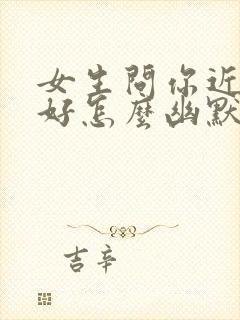 女生問你近
好怎麼幽默
吉辛